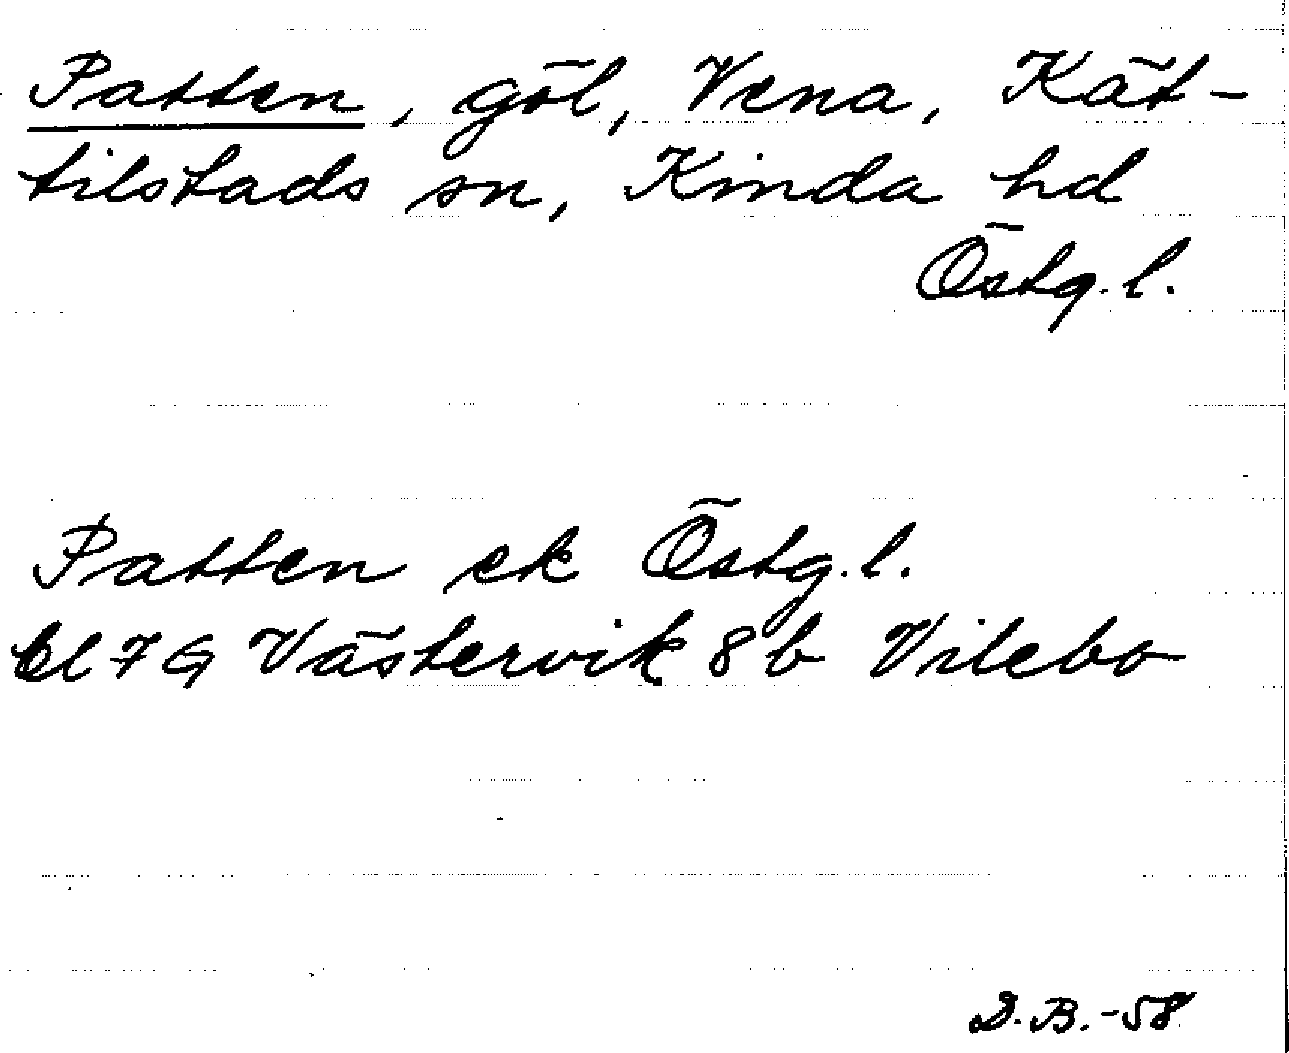 Patten, göl, Vena, Kät-
tilstads sn, Kinda hd
Östg. l.
Patten ek Östg. l.
Bl 7 G Västervik 8 b Vilebo
D.B. -58